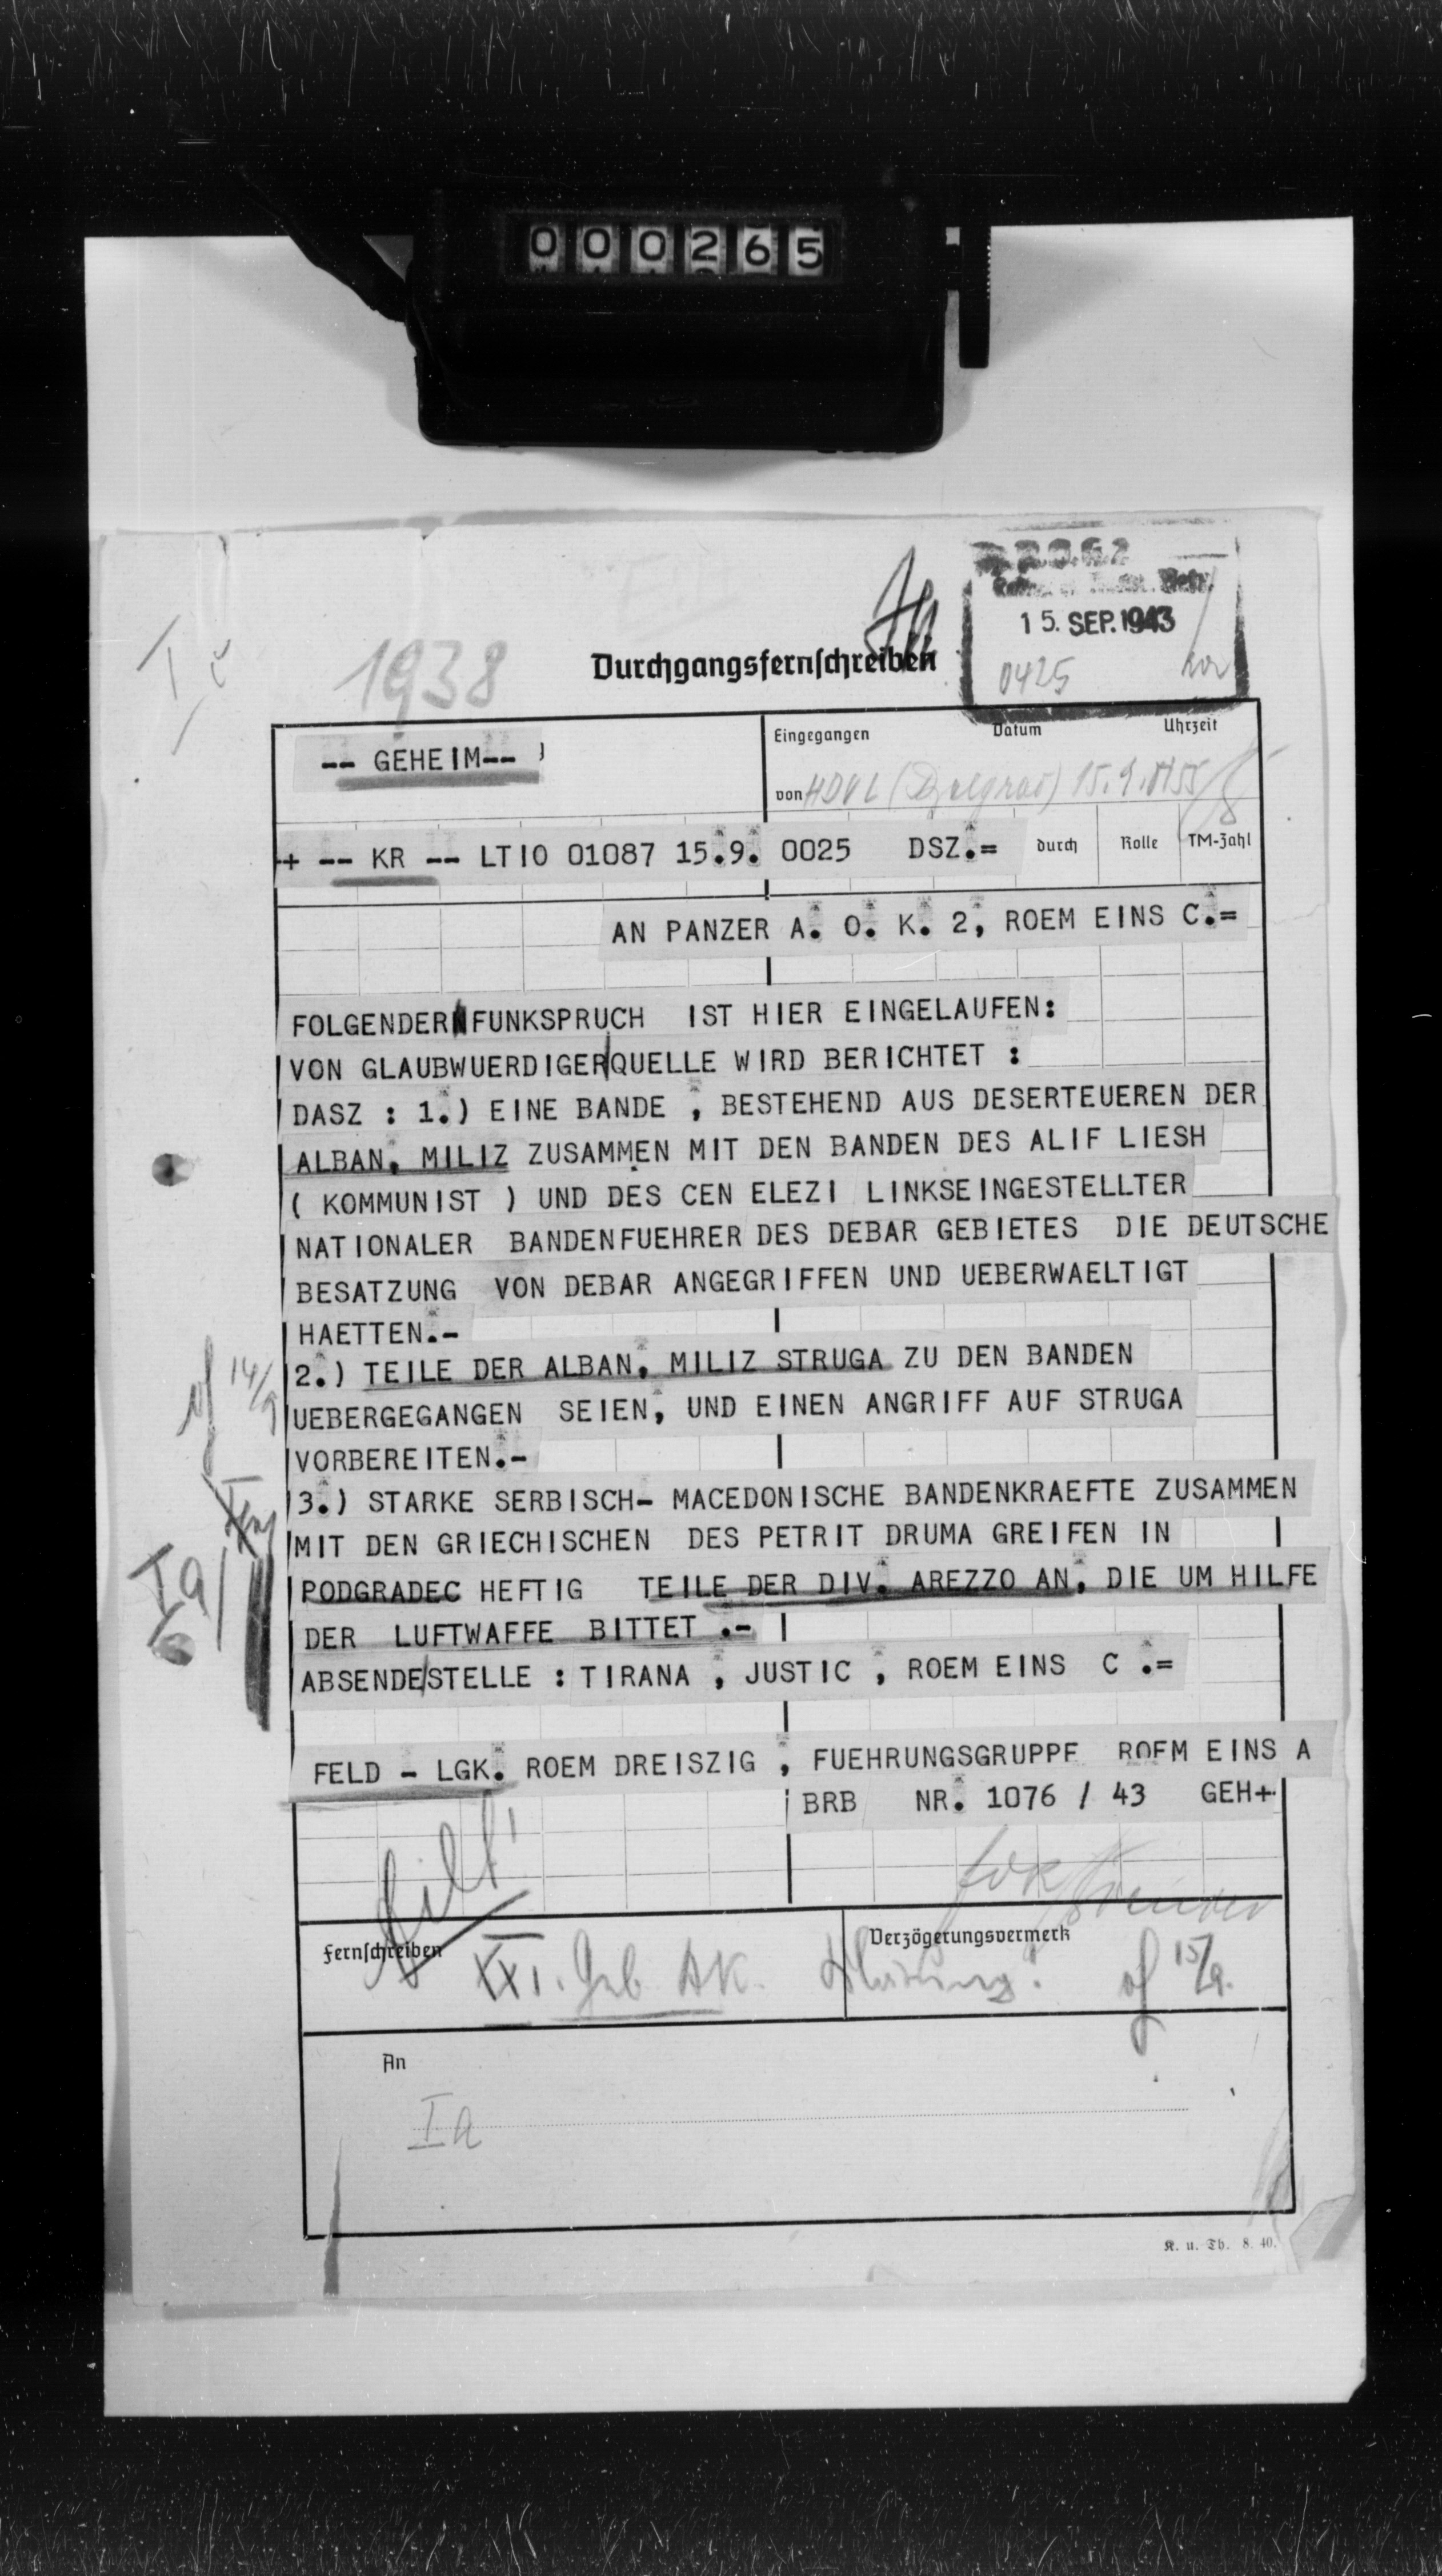 000265
15. SEP. 1943
0425
Ic
1938
Durchgangsfernschreiben
-- GEHEIM--
Eingegangen Datum Uhrzeit
von
+ -- KR -- LTIO 01087 15.9. 0025 DSZ.= durch Rolle TM-Zahl
AN PANZER A. O. K. 2, ROEM EINS C.=
FOLGENDER FUNKSPRUCH IST HIER EINGELAUFEN:
VON GLAUBWUERDIGER QUELLE WIRD BERICHTET :
DASZ : 1.) EINE BANDE , BESTEHEND AUS DESERTEUEREN DER
ALBAN. MILIZ ZUSAMMEN MIT DEN BANDEN DES ALIF LIESH
( KOMMUNIST ) UND DES CEN ELEZI LINKSEINGESTELLTER
NATIONALER BANDENFUEHRER DES DEBAR GEBIETES DIE DEUTSCHE
BESATZUNG VON DEBAR ANGEGRIFFEN UND UEBERWAELTIGT
HAETTEN.-
14/9
2.) TEILE DER ALBAN. MILIZ STRUGA ZU DEN BANDEN
UEBERGEGANGEN SEIEN, UND EINEN ANGRIFF AUF STRUGA
VORBEREITEN.-
3.) STARKE SERBISCH- MACEDONISCHE BANDENKRAEFTE ZUSAMMEN
MIT DEN GRIECHISCHEN DES PETRIT DRUMA GREIFEN IN
Ia
PODGRADEC HEFTIG TEILE DER DIV. AREZZO AN, DIE UM HILFE
DER LUFTWAFFE BITTET .-
ABSENDE/STELLE : TIRANA , JUSTIC , ROEM EINS C .=
FELD - LGK. ROEM DREISZIG , FUEHRUNGSGRUPPE ROEM EINS A
BRB NR. 1076 / 43 GEH+
Fernschreiben Verzögerungsvermerk
XXI. Geb AK. 15/9.
An
Ia
K. u. Tb. 8. 40.